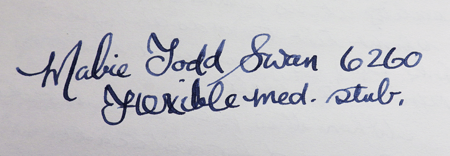 Mabie Todd Swan 6260
Flexible med. stub.